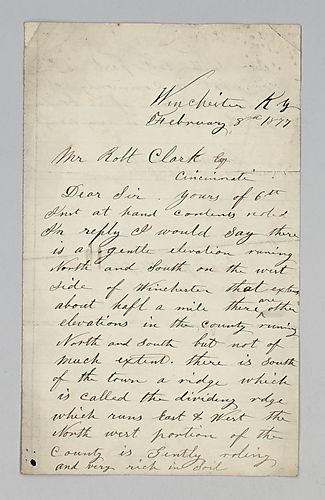 Winchester Ky
February 8th 1877
Mr Robt Clark Esq
Cincinnati
Dear Sir. yours of 6th
Inst at hand contents noted
In reply I would say there
is a gentle elevation runing
North and South on the west
side of Winchester that extends
about haft a mile there are other
elevations in the county runing
North and South but not of
much extent. there is south
of the town a ridge which
is called the dividing rdge
which runs East & West the
North west portion of the
County is Gently roling
and very rich in Soil